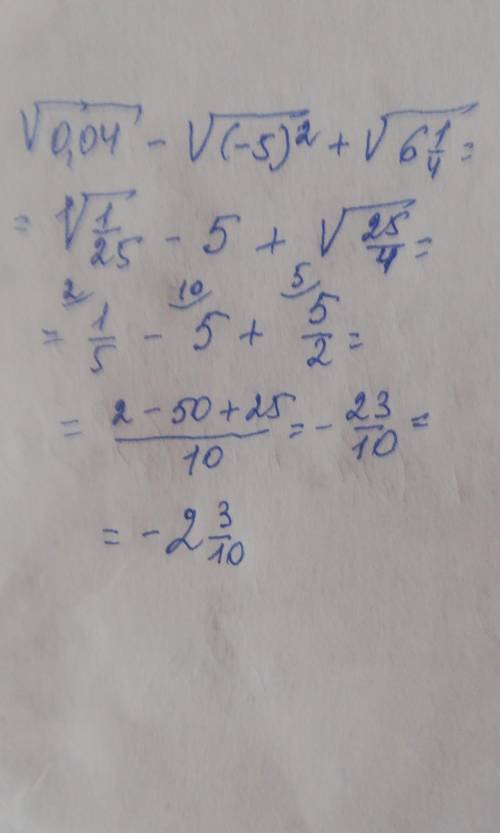 √0,04 - √(-5)² + √6 1/4 =
= √1/25 - 5 + √25/4 =
2 10 5
= 1/5 - 5 + 5/2 =
= (2 - 50 + 25)/10 = - 23/10 =
= - 2 3/10